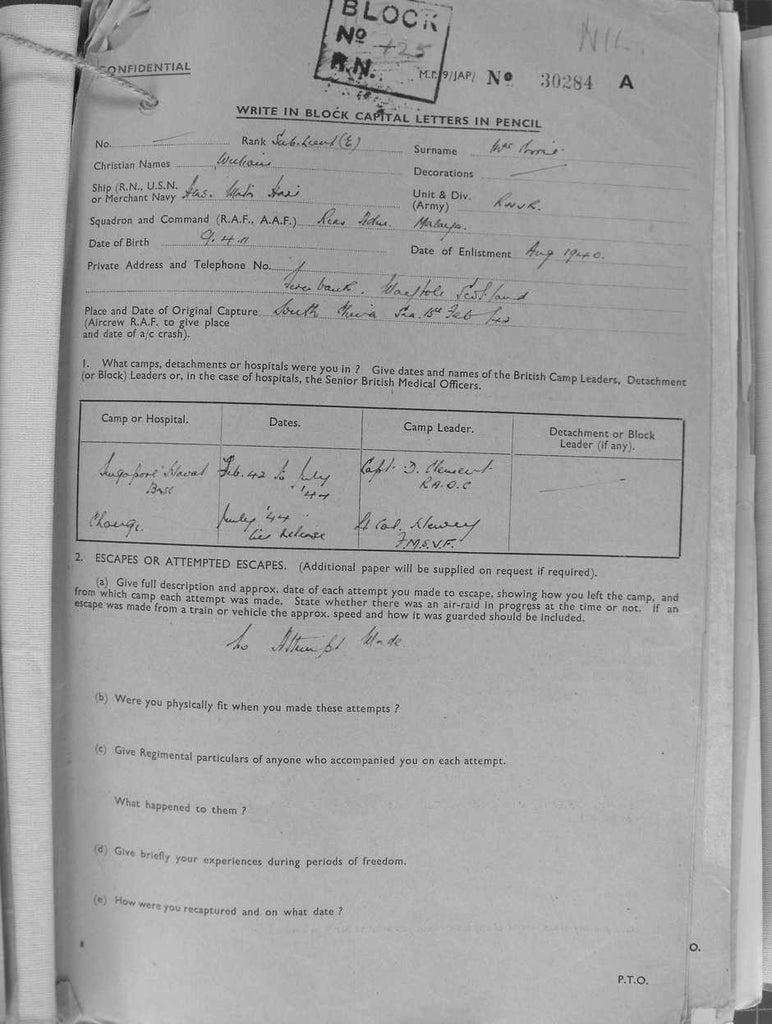 BLOCK
No 125
R.N.
NIL.
CONFIDENTIAL
M.I.9/JAP/ No 30284 A
WRITE IN BLOCK CAPITAL LETTERS IN PENCIL
No. — Rank Sub. Lieut (E) Surname
Christian Names William Decorations —
Ship (R.N., U.S.N. or Merchant Navy
Unit & Div. (Army) R.N.V.R.
Squadron and Command (R.A.F., A.A.F.) Rear Adm. Malaya.
Date of Birth 9.4.11 Date of Enlistment Aug 1940.
Private Address and Telephone No.
Scotland
Place and Date of Original Capture South China Sea. 15th Feb
(Aircrew R.A.F. to give place
and date of a/c crash).
1. What camps, detachments or hospitals were you in ? Give dates and names of the British Camp Leaders, Detachment
(or Block) Leaders or, in the case of hospitals, the Senior British Medical Officers.
Camp or Hospital. Dates. Camp Leader. Detachment or Block
Leader (if any).
Singapore Naval Feb. 42 to July Capt. D. Clement —
Base '44 R.A.O.C
Changi. July '44 Lt Col.
till Release F.M.S.V.F.
2. ESCAPES OR ATTEMPTED ESCAPES. (Additional paper will be supplied on request if required).
(a) Give full description and approx. date of each attempt you made to escape, showing how you left the camp, and
from which camp each attempt was made. State whether there was an air-raid in progress at the time or not. If an
escape was made from a train or vehicle the approx. speed and how it was guarded should be included.
No Attempt Made.
(b) Were you physically fit when you made these attempts ?
(c) Give Regimental particulars of anyone who accompanied you on each attempt.
What happened to them ?
(d) Give briefly your experiences during periods of freedom.
(e) How were you recaptured and on what date ?
O.
P.T.O.